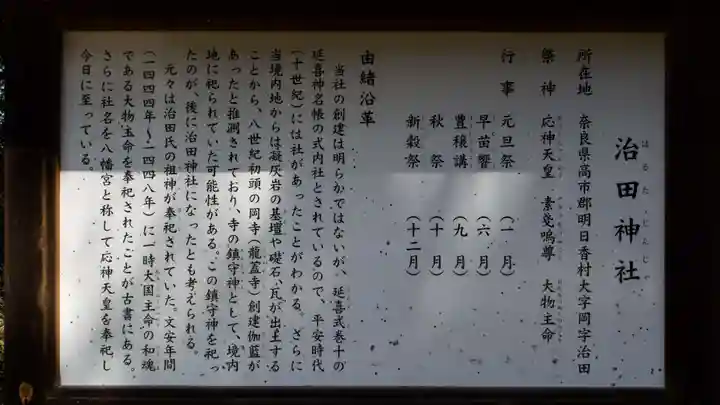 治田神社
はるた じんじゃ
所在地 奈良県高市郡明日香村大字岡字治田
祭神 応神天皇 素戔嗚尊 大物主命
行事 元旦祭 (一月)
早苗響 (六月)
豊穣講 (九月)
秋祭 (十月)
新穀祭 (十二月)
由緒沿革
当社の創建は明らかではないが、延喜式巻十の
延喜神名帳の式内社とされているので、平安時代
(十世紀)には社があったことがわかる。さらに
当境内地からは凝灰岩の基壇や礎石、瓦が出土する
ことから、八世紀初頭の岡寺(龍蓋寺)創建伽藍が
あったと推測されており、寺の鎮守神として、境内
地に祀られていた可能性がある。この鎮守神を祀っ
たのが、後に治田神社になったとも考えられる。
元々は治田氏の祖神が奉祀されていた。文安年間
(一四四四年～一四四八年)に一時大国主命の和魂
である大物主命を奉祀されたことが古書にある。
さらに社名を八幡宮と称して応神天皇を奉祀し
今日に至っている。